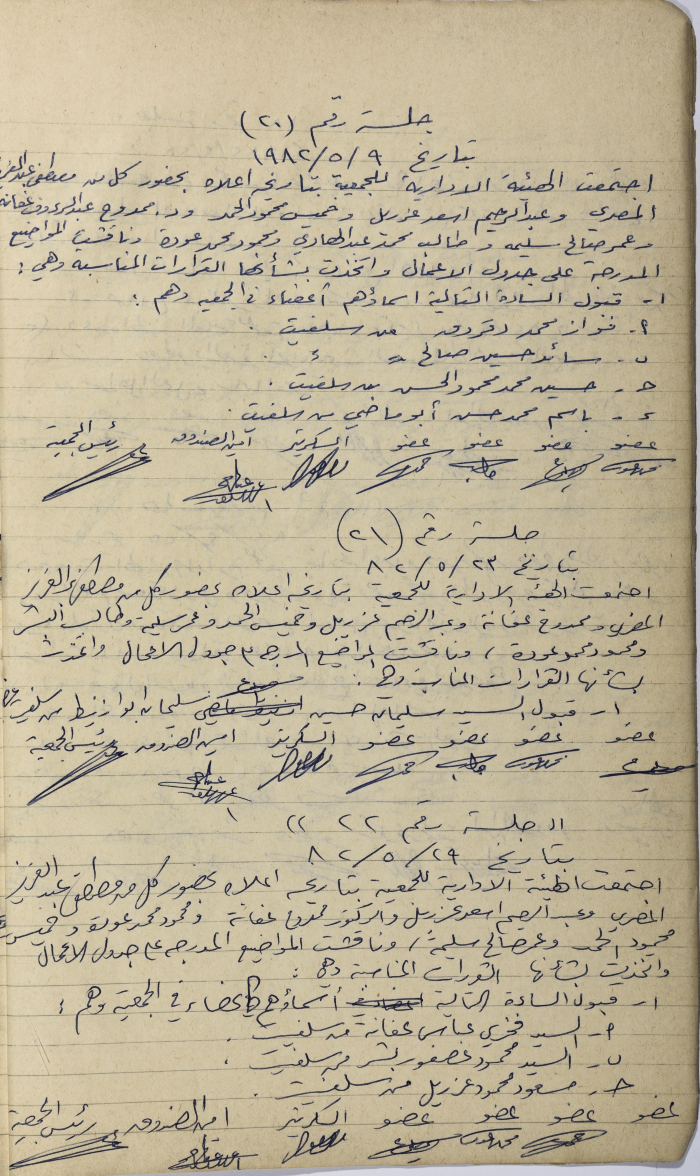 جلسة رقم (٢٠)
بتاريخ ١٩٨٢/٥/٩
اجتمعت الهيئة الادارية للجمعية بتاريخه اعلاه بحضور كل من مصطفى عبد العزيز
المصري وعبد الرحيم اسعد عزريل وخميس محمود الحمد ود. ممدوح عبد الرؤوف عفانة
وعمر صالح سليمه وطالب محمد عبد الهادي ومحمود محمد عودة وناقشت المواضيع
المدرجة على جدول الاعمال واتخذت بشأنها القرارات المناسبه وهي :
١- قبول السادة التالية اسماؤهم أعضاء في الجمعيه وهم :
٢- فواز محمد دقروق من سلفيت .
ب- سائد حسين صالح = = .
ح- حسين محمد محمود الحسن من سلفيت .
ء- باسم محمد حسن أبو ماضي من سلفيت .
عضو عضو عضو عضو السكرتير امين الصندوق رئيس الجمعية
جلسة رقم (٢١)
بتاريخ ٨٢/٥/٢٣
اجتمعت الهيئة الادارية للجمعية بتاريخه اعلاه بحضور كل من مصطفى عبد العزيز
المصري وممدوح عفانة وعبد الرحيم عزريل وخميس الحمد وعمر سليمه وطالب
ومحمود محمد عودة ، وناقشت المواضيع المدرجه على جدول الاعمال واتخذت
بشأنها القرارات المناسبة وهي :
١- قبول السيد سليمان حسين سليمان ابو ازنيط من سلفيت
عضو عضو عضو عضو السكرتير امين الصندوق رئيس الجمعية
(( جلسة رقم ٢٢ ))
بتاريخ ٨٢/٥/٢٩
اجتمعت الهيئة الادارية للجمعية بتاريخه اعلاه بحضور كل من مصطفى عبد العزيز
المصري وعبد الرحيم اسعد عزريل والدكتور ممدوح عفانة ومحمود محمد عودة وخميس
محمود الحمد وعمر صالح سليمة ، وناقشت المواضيع المدرجه على جدول الاعمال
واتخذت بشأنها القرارات المناسبة وهي :
١- قبول السادة التالية أسماؤهم كأعضاء في الجمعية وهم :
٢- السيد فخري عباس عفانة من سلفيت .
ب- السيد محمود عصفور بشر من سلفيت .
ح- مسعود محمود عزريل من سلفيت .
عضو عضو عضو عضو السكرتير امين الصندوق رئيس الجمعية